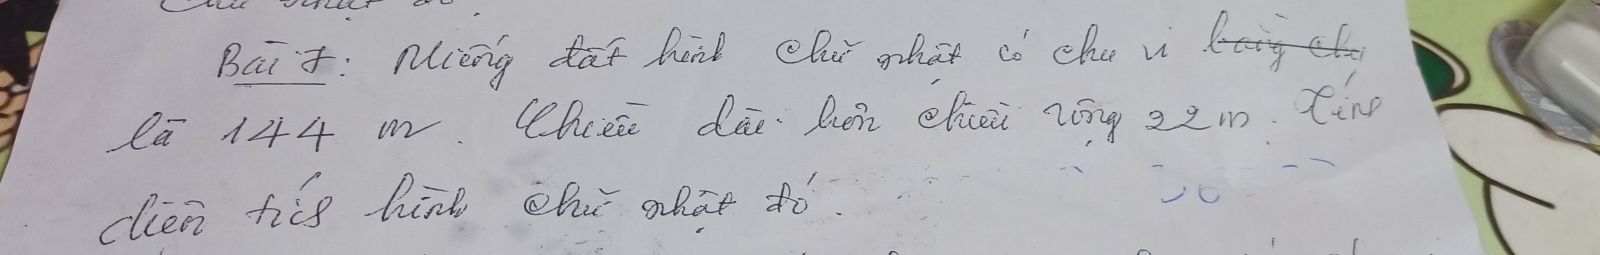 Bài 7: Miếng đất hình chữ nhật có chu vi
là 144 m. Chiều dài hơn chiều rộng 22m. Tính
diện tích hình chữ nhật đó.